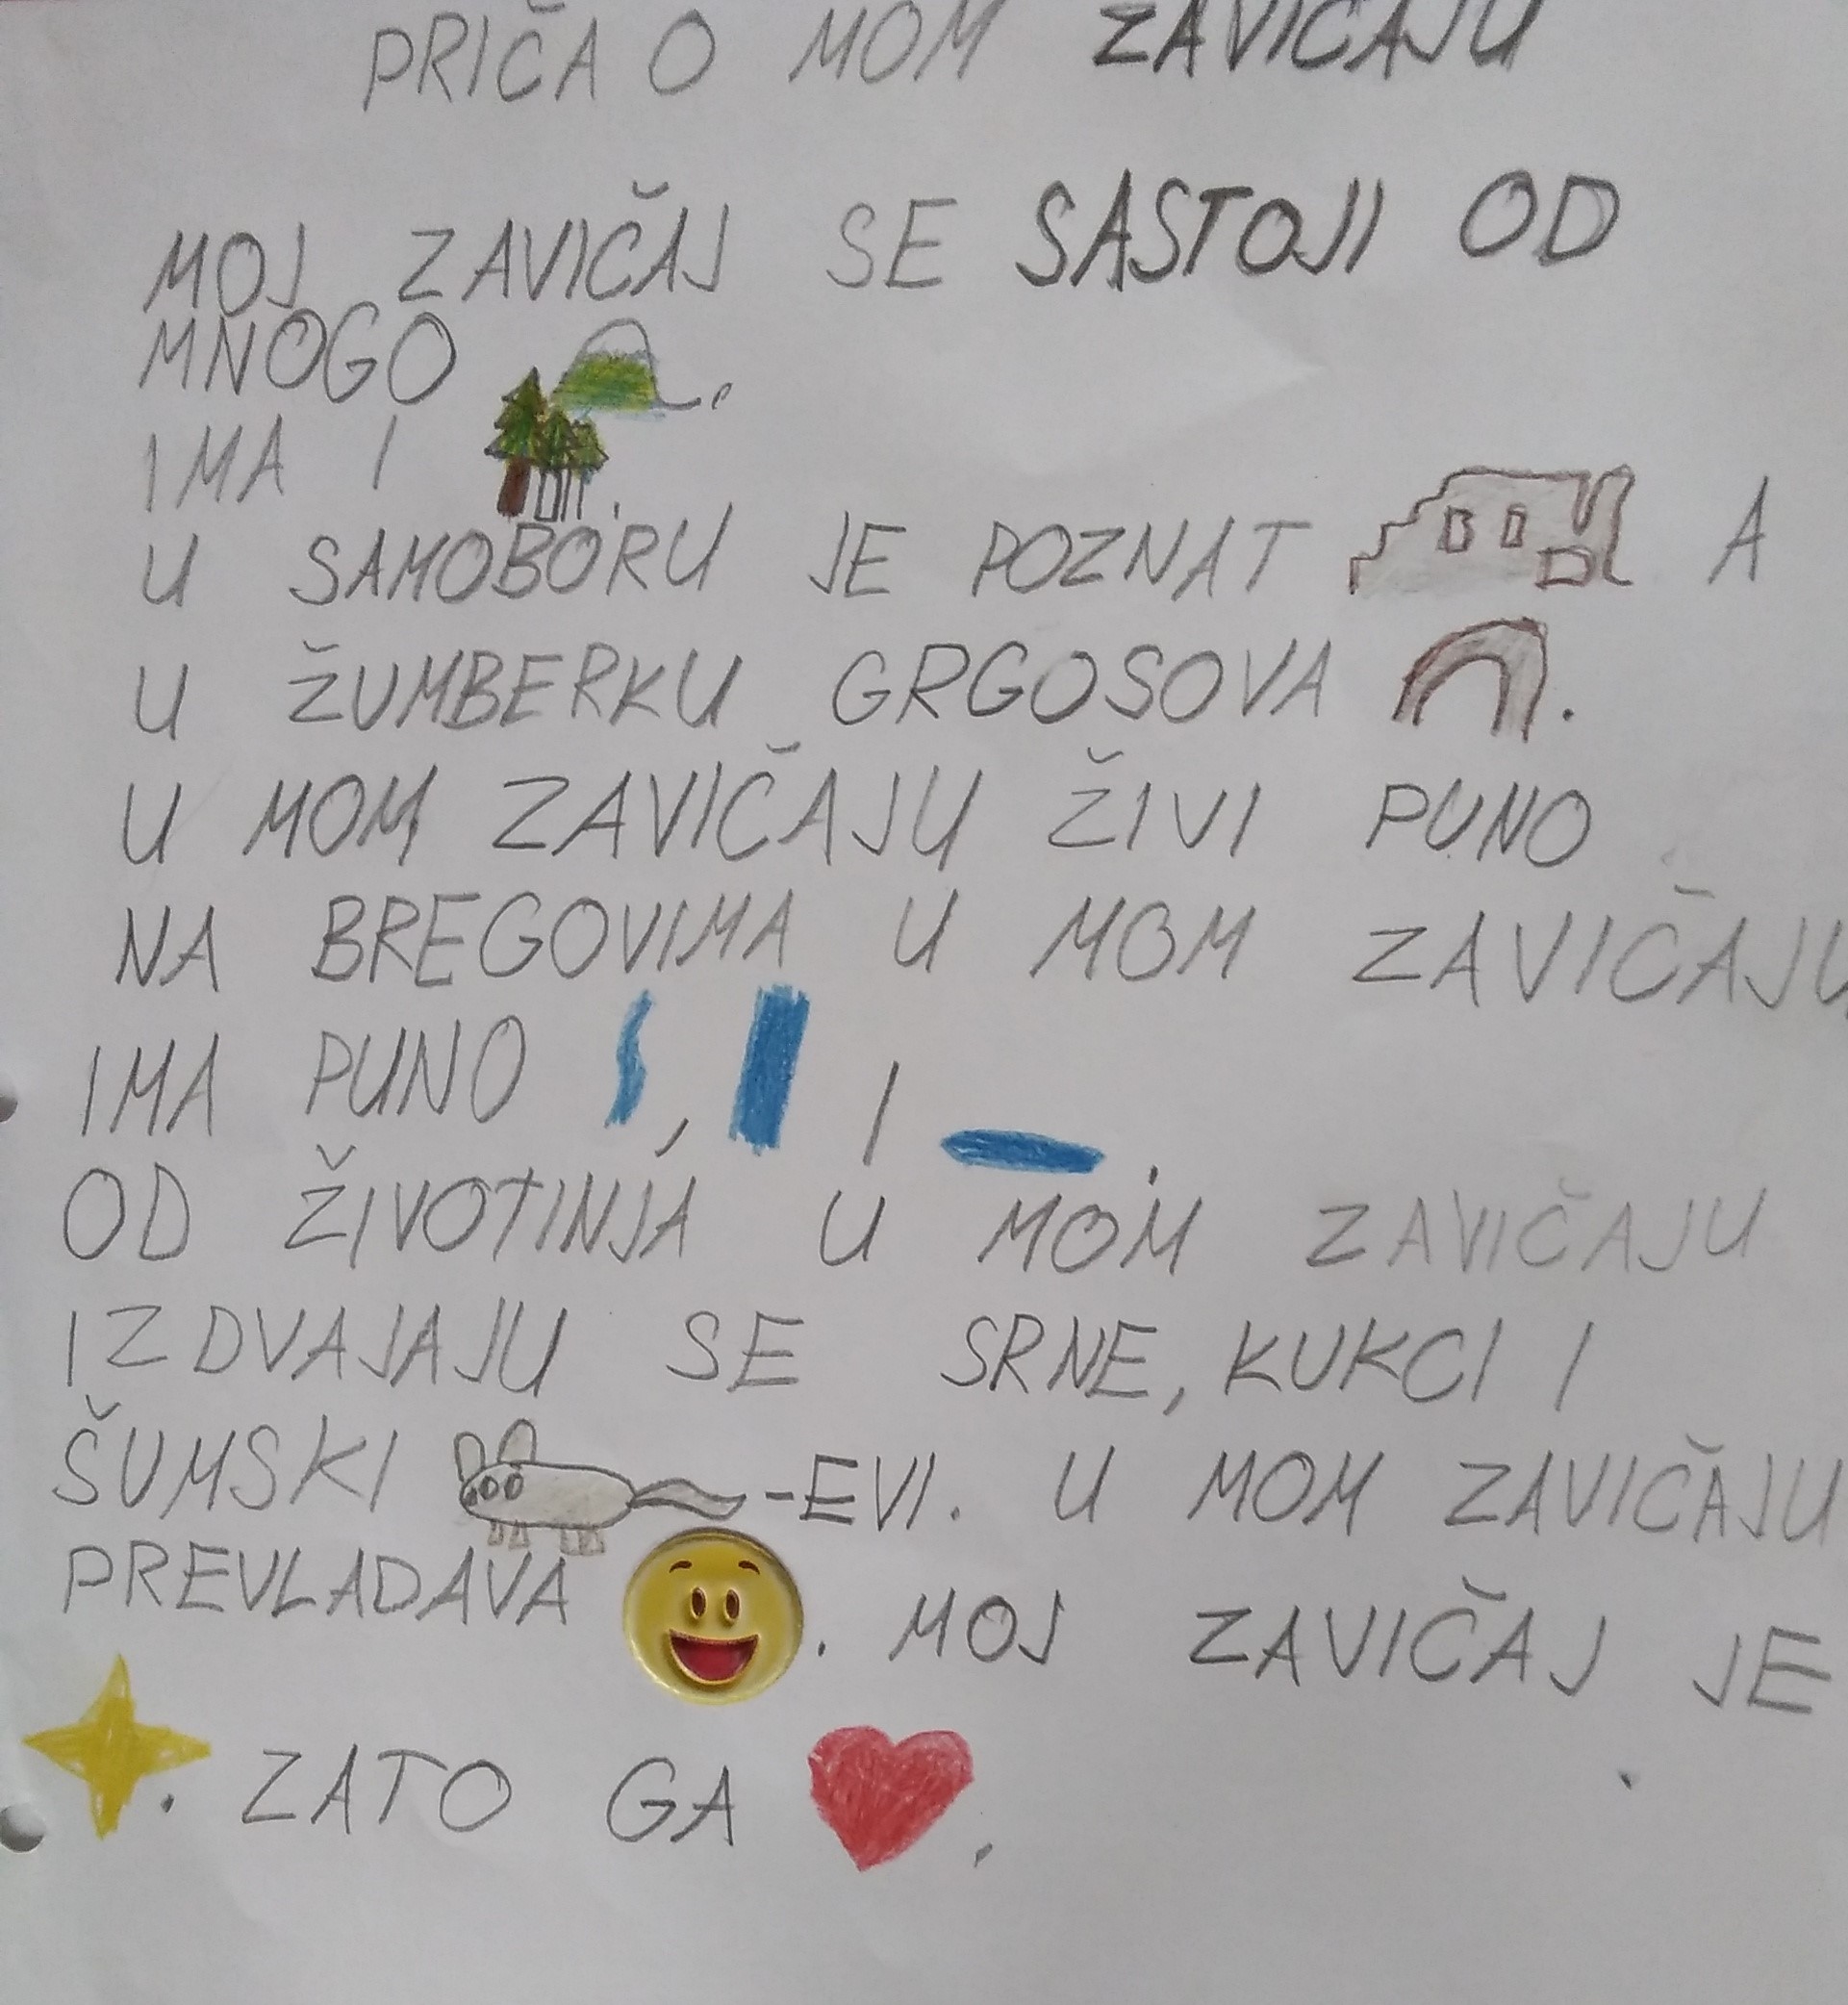 PRIČA O MOM ZAVIČAJU
MOJ ZAVIČAJ SE SASTOJI OD
MNOGO .
IMA I .
U SAMOBORU JE POZNAT A
U ŽUMBERKU GRGOSOVA .
U MOM ZAVIČAJU ŽIVI PUNO
NA BREGOVIMA U MOM ZAVIČAJU
IMA PUNO , I .
OD ŽIVOTINJA U MOM ZAVIČAJU
IZDVAJAJU SE SRNE, KUKCI I
ŠUMSKI -EVI. U MOM ZAVIČAJU
PREVLADAVA . MOJ ZAVIČAJ JE
. ZATO GA .